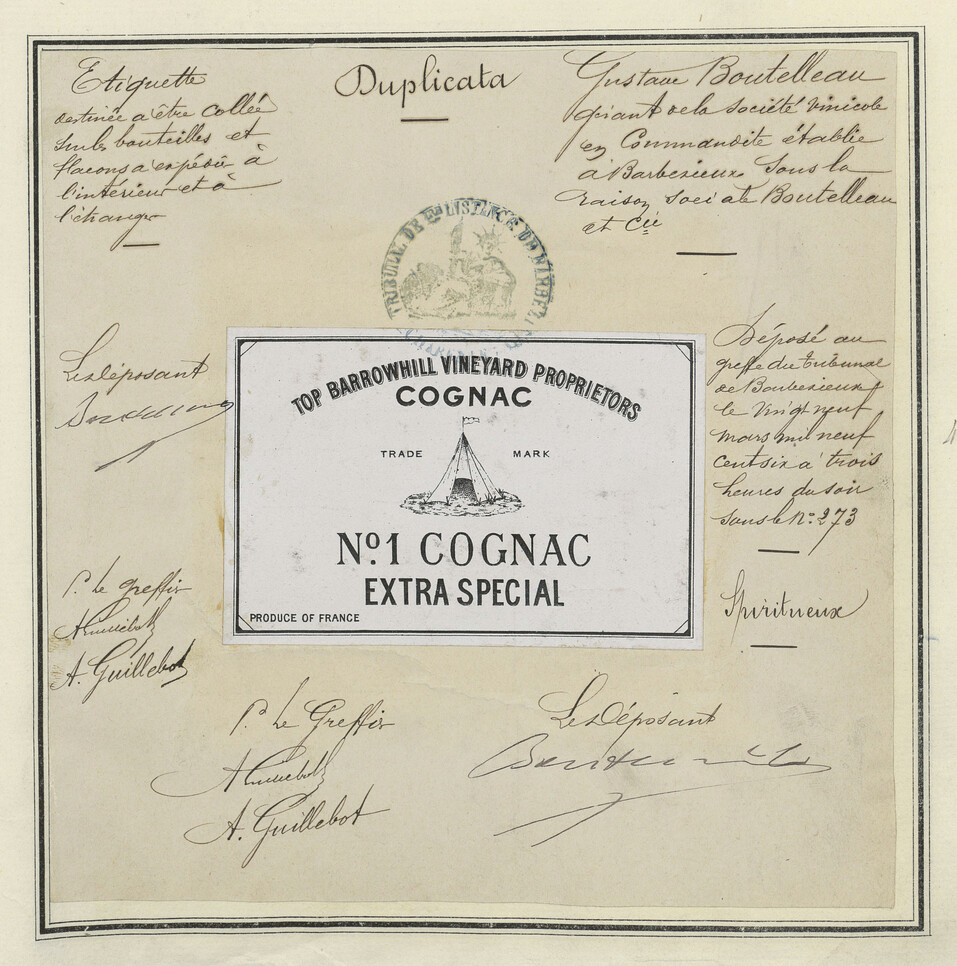 Duplicata
Etiquette
destinée a être collée
sur les bouteilles et
flacons a expédier à
l'intérieur et à
l'étranger
Gustave Boutelleau
gérant de la Société Vinicole
en Commandite établie
à Barbezieux Sous la
raison sociale Boutelleau
et Cie
TRIBUNAL DE INSTANCE DE BARBEZIEUX
TOP BARROWHILL VINEYARD PROPRIETORS
COGNAC
TRADE MARK
Nº1 COGNAC
EXTRA SPECIAL
PRODUCE OF FRANCE
Le Déposant
Déposé au
greffe du tribunal
de Barbezieux
le Vingt neuf
mars mil neuf
cent six à trois
heures du soir
sous le Nº 273
Spiritueux
P. le greffier
A. Guillebot
A. Guillebot
P. Le Greffier
A. Guillebot
A. Guillebot
Le Déposant